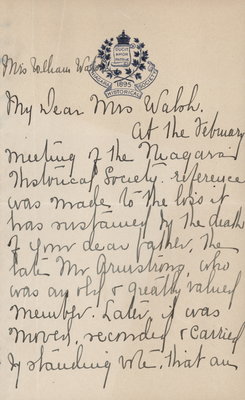 Mrs William Walsh
DUCIT AMOR PATRIAE
NIAGARA HISTORICAL SOCIETY
1895
My Dear Mrs Walsh.
At the February
meeting of the Niagara
Historical Society reference
was made to the loss it
has sustained by the death
of your dear father, the
late Mr Armstrong, who
was an old & greatly valued
member. Later, it was
moved, seconded & carried
by standing vote, that an